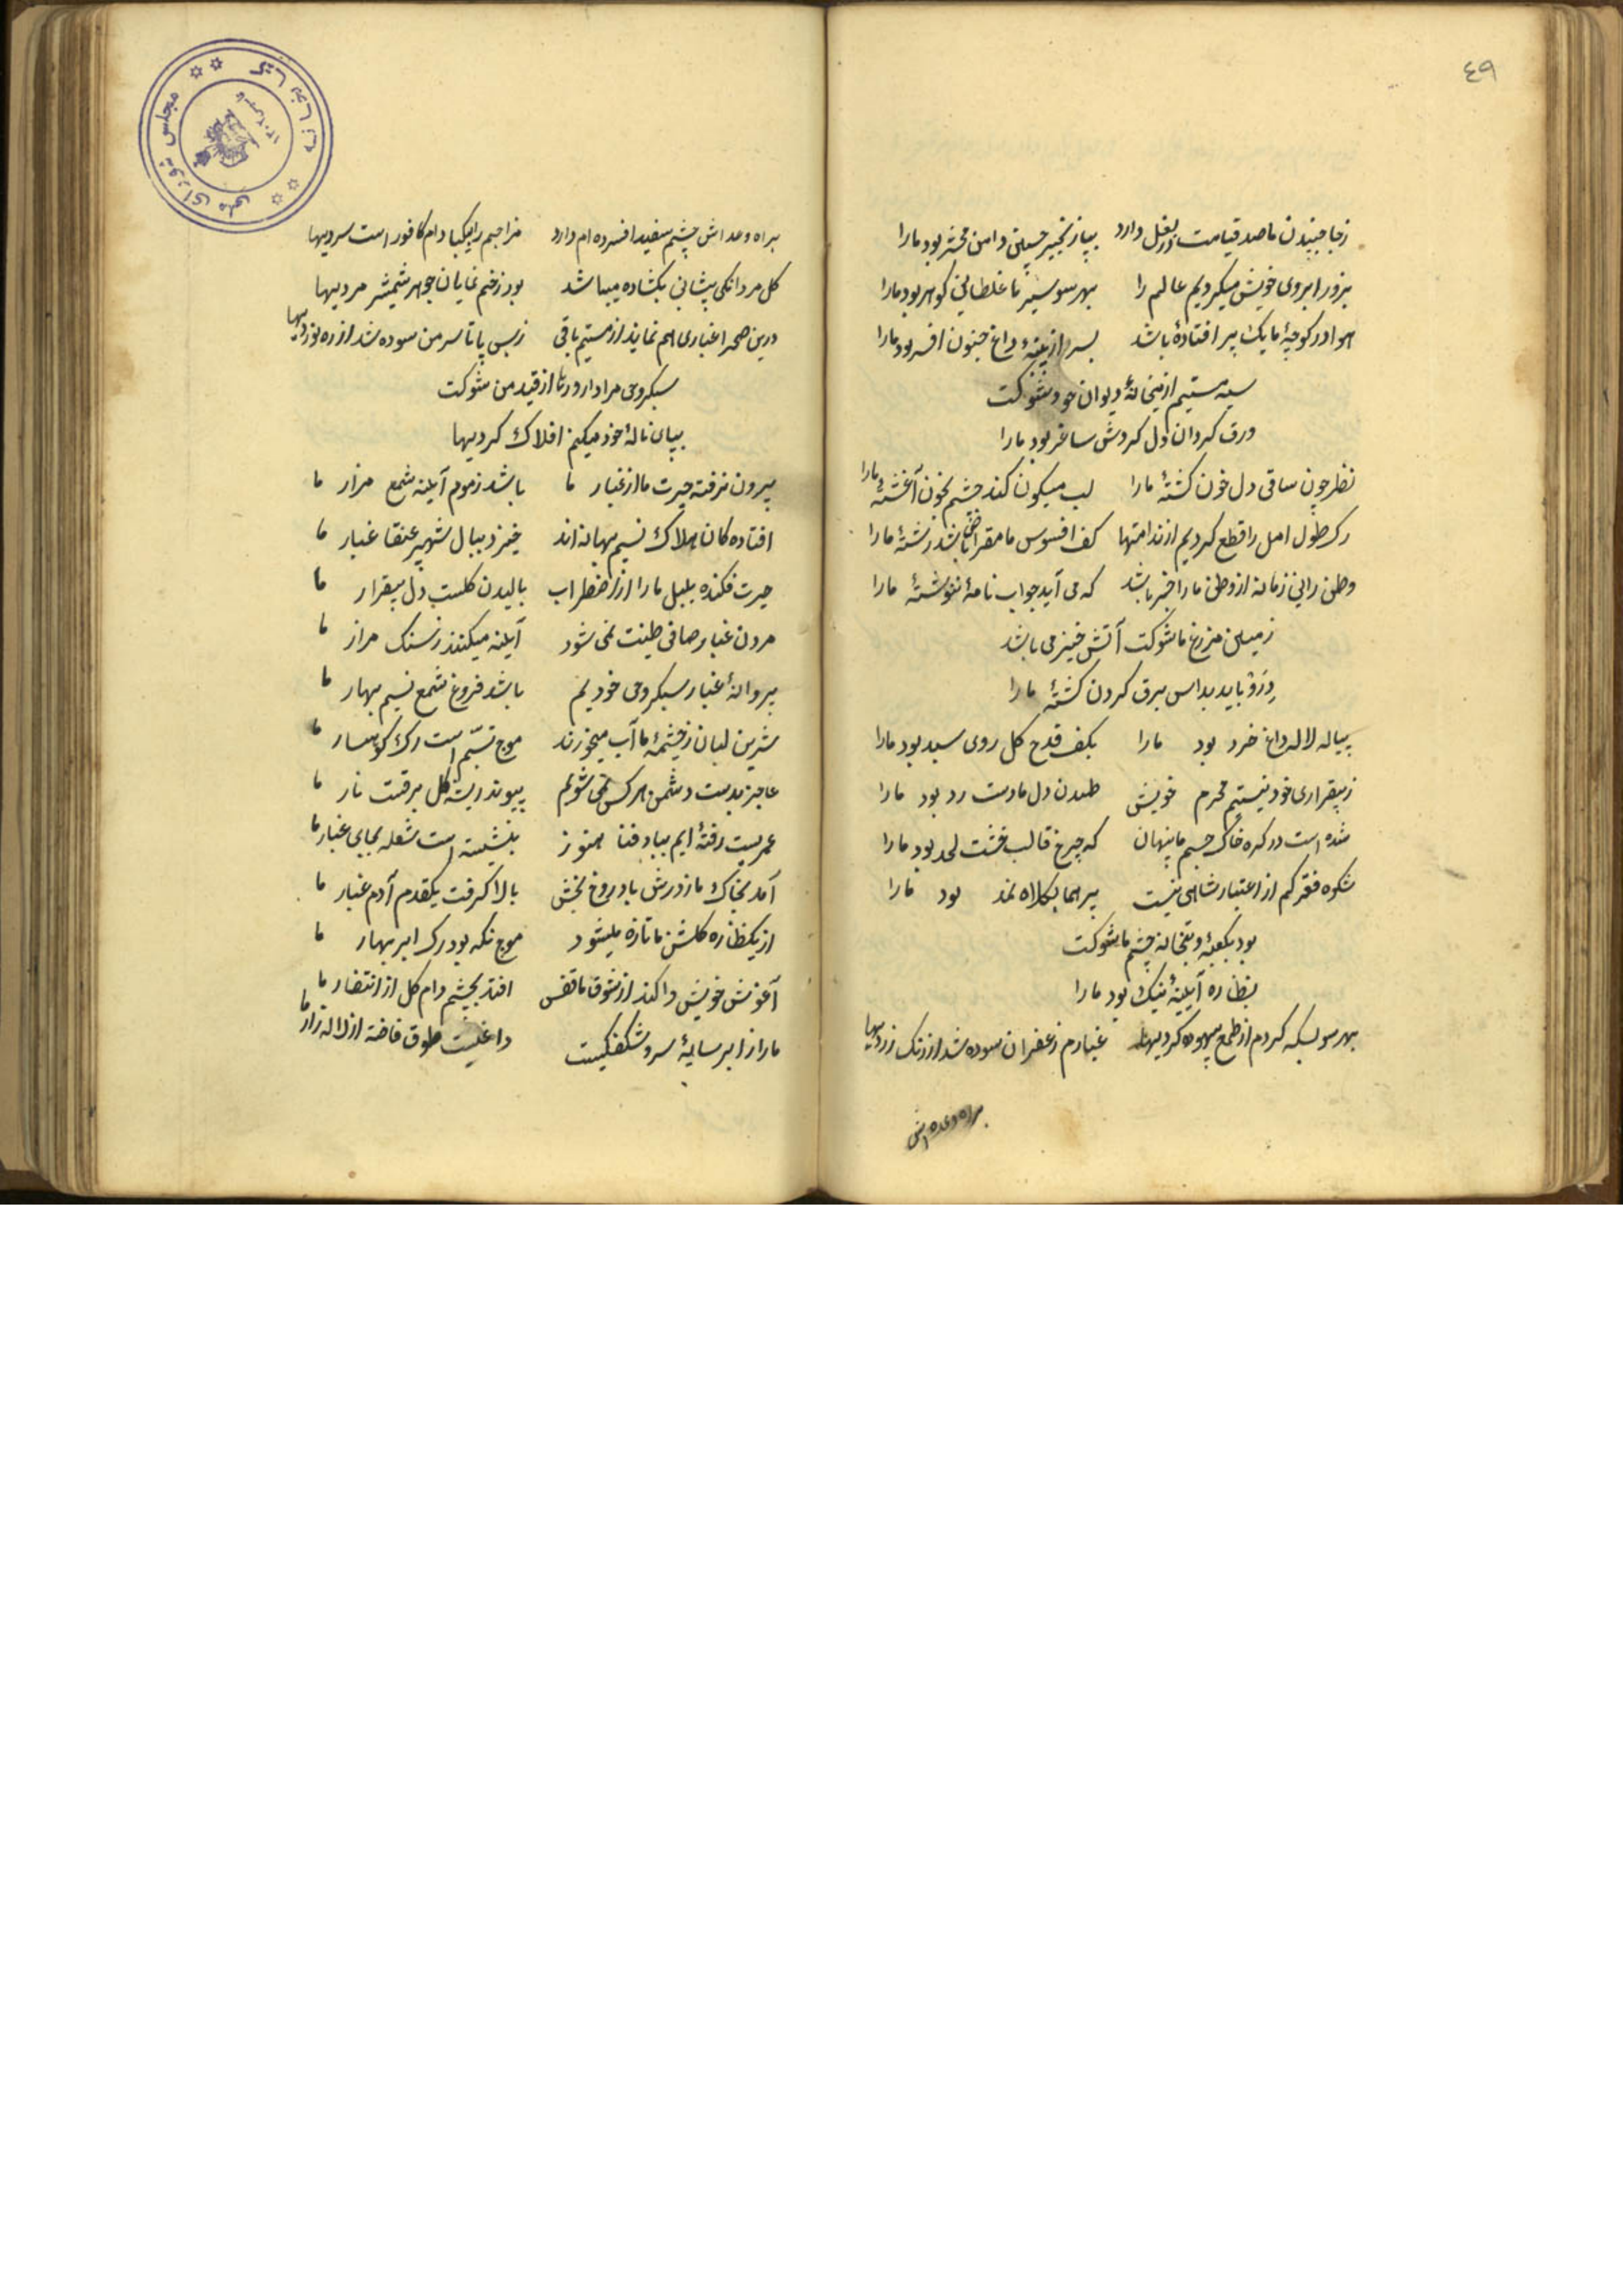 ٤٩
زجا جنبیدن ما صد قیامت در بغل دارد بپا زنجیر چین دامن محشر بود ما را
بزور ابروی خویش میکردیم عالم را بهر سو سیر ما غلطانی کوهر بود ما را
هوا در کوچهٔ ما یک پر افتاده باشد بسر از پنبهٔ داغ جنون افسر بود ما را
سیه مستیم از میخانهٔ دیوان خود شوکت
ورق کردان دل کردش ساغر بود ما را
نظر چون ساقی دل خون کشتهٔ ما را لب میکون کند چشم بخون آغشتهٔ ما را
رک طول امل را قطع کردیم از ندامتها کف افسوس ما مقراض باشد رشتهٔ ما را
وطن زمانه از وطن ما را خبر باشد که می آید جواب نامهٔ ننوشتهٔ ما را
زمین مزرع ما شوکت آتش خیز می باشد
درو باید بداس برق کردن کشتهٔ ما را
پیاله لاله داغ خرد بود ما را بکف قدح کل روی سبد بود ما را
ز بیقراری خود نیستیم محرم خویش طپیدن دل ما دست رد بود ما را
شده است در کره خاک جسم ما پنهان که چرخ قالب خشت لحد بود ما را
شکوه فقر کم از اعتبار شاهی نیست پر هما بکلاه نمد بود ما را
بود بکعبه و بتخانه چشم ما شوکت
نظاره آیینهٔ نیک و بد بود ما را
بهر سو بسکه کردم از طمع بیهوده کردیها غبارم زعفران سوده شد از رنک زردیها
براه وعده اش
براه وعده اش چشم سفید افسرده ام دارد مزاجم را بیکبادام کافور است سردیها
کل مردانکی پیشانی بکشاده میباشد بود زخم نمایان جوهر شمشیر مردیها
درین صحرا غباری هم نماند از هستیم باقی ز بس پا تا سر من سوده شد از ره نوردیها
سبکروحی مرا دارد رها از قید من شوکت
بپای نالهٔ خود میکنم افلاک کردیها
بیرون نرفته حیرت ما از غبار ما باشد ز موم آینه شمع مزار ما
افتادکان هلاک نسیم بهانه اند خیزد ببال شهپر عنقا غبار ما
حیرت فکنده بلبل ما را از اضطراب بالیدن کلست دل بیقرار ما
مردن غبار صافی طینت نمی شود آینه میکنند ز سنک مزار ما
پروانهٔ غبار سبکروحی خودیم باشد فروغ شمع نسیم بهار ما
شیرین لبان ز چشمهٔ ما آب میخورند موج تبسّم است رک کوهسار ما
عاجز بدست دشمن هر کس نمی شویم پیوند ریشه کل برقست نار ما
عمریست رفته ایم بباد فنا هنوز بنشسته است شعله بجای غبار ما
آمد بخاک ما ز درش باد روح بخش بالا کرفت یکقدم آدم غبار ما
از یکنظاره کلشن ما تازه میشود موج نکه بود رک ابر بهار ما
آغوش خویش وا کند از شوق ما قفس افتد بچشم دام کل از انتظار ما
ما را ز ابر سایهٔ سرو شکفتکیست داغیست طوق فاخته از لاله زار ما
مجلس شورای ملی